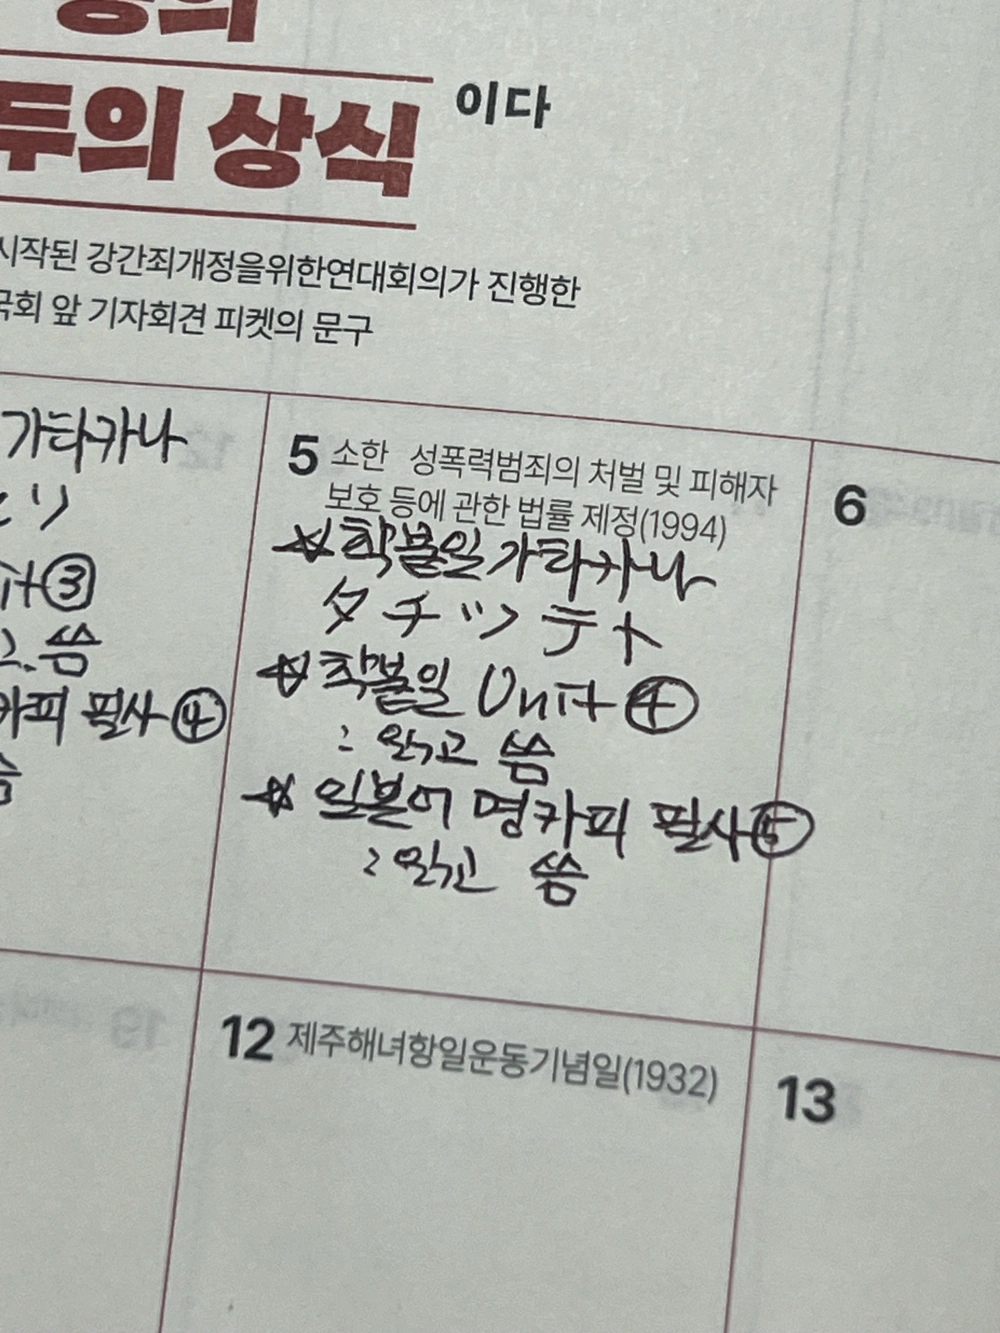 두의 상식 이다
시작된 강간죄개정을위한연대회의가 진행한
국회 앞 기자회견 피켓의 문구
가타카나
ツ
③
고. 씀
카피 필사 ④
5 소한 성폭력범죄의 처벌 및 피해자
보호 등에 관한 법률 제정(1994)
☆ 착붙일 가타카나
タ チ ツ テ ト
☆ 착붙일 Unit ④
: 읽고 씀
☆ 일본어 명카피 필사 ⑤
: 읽고 씀
6
12 제주해녀항일운동기념일(1932)
13